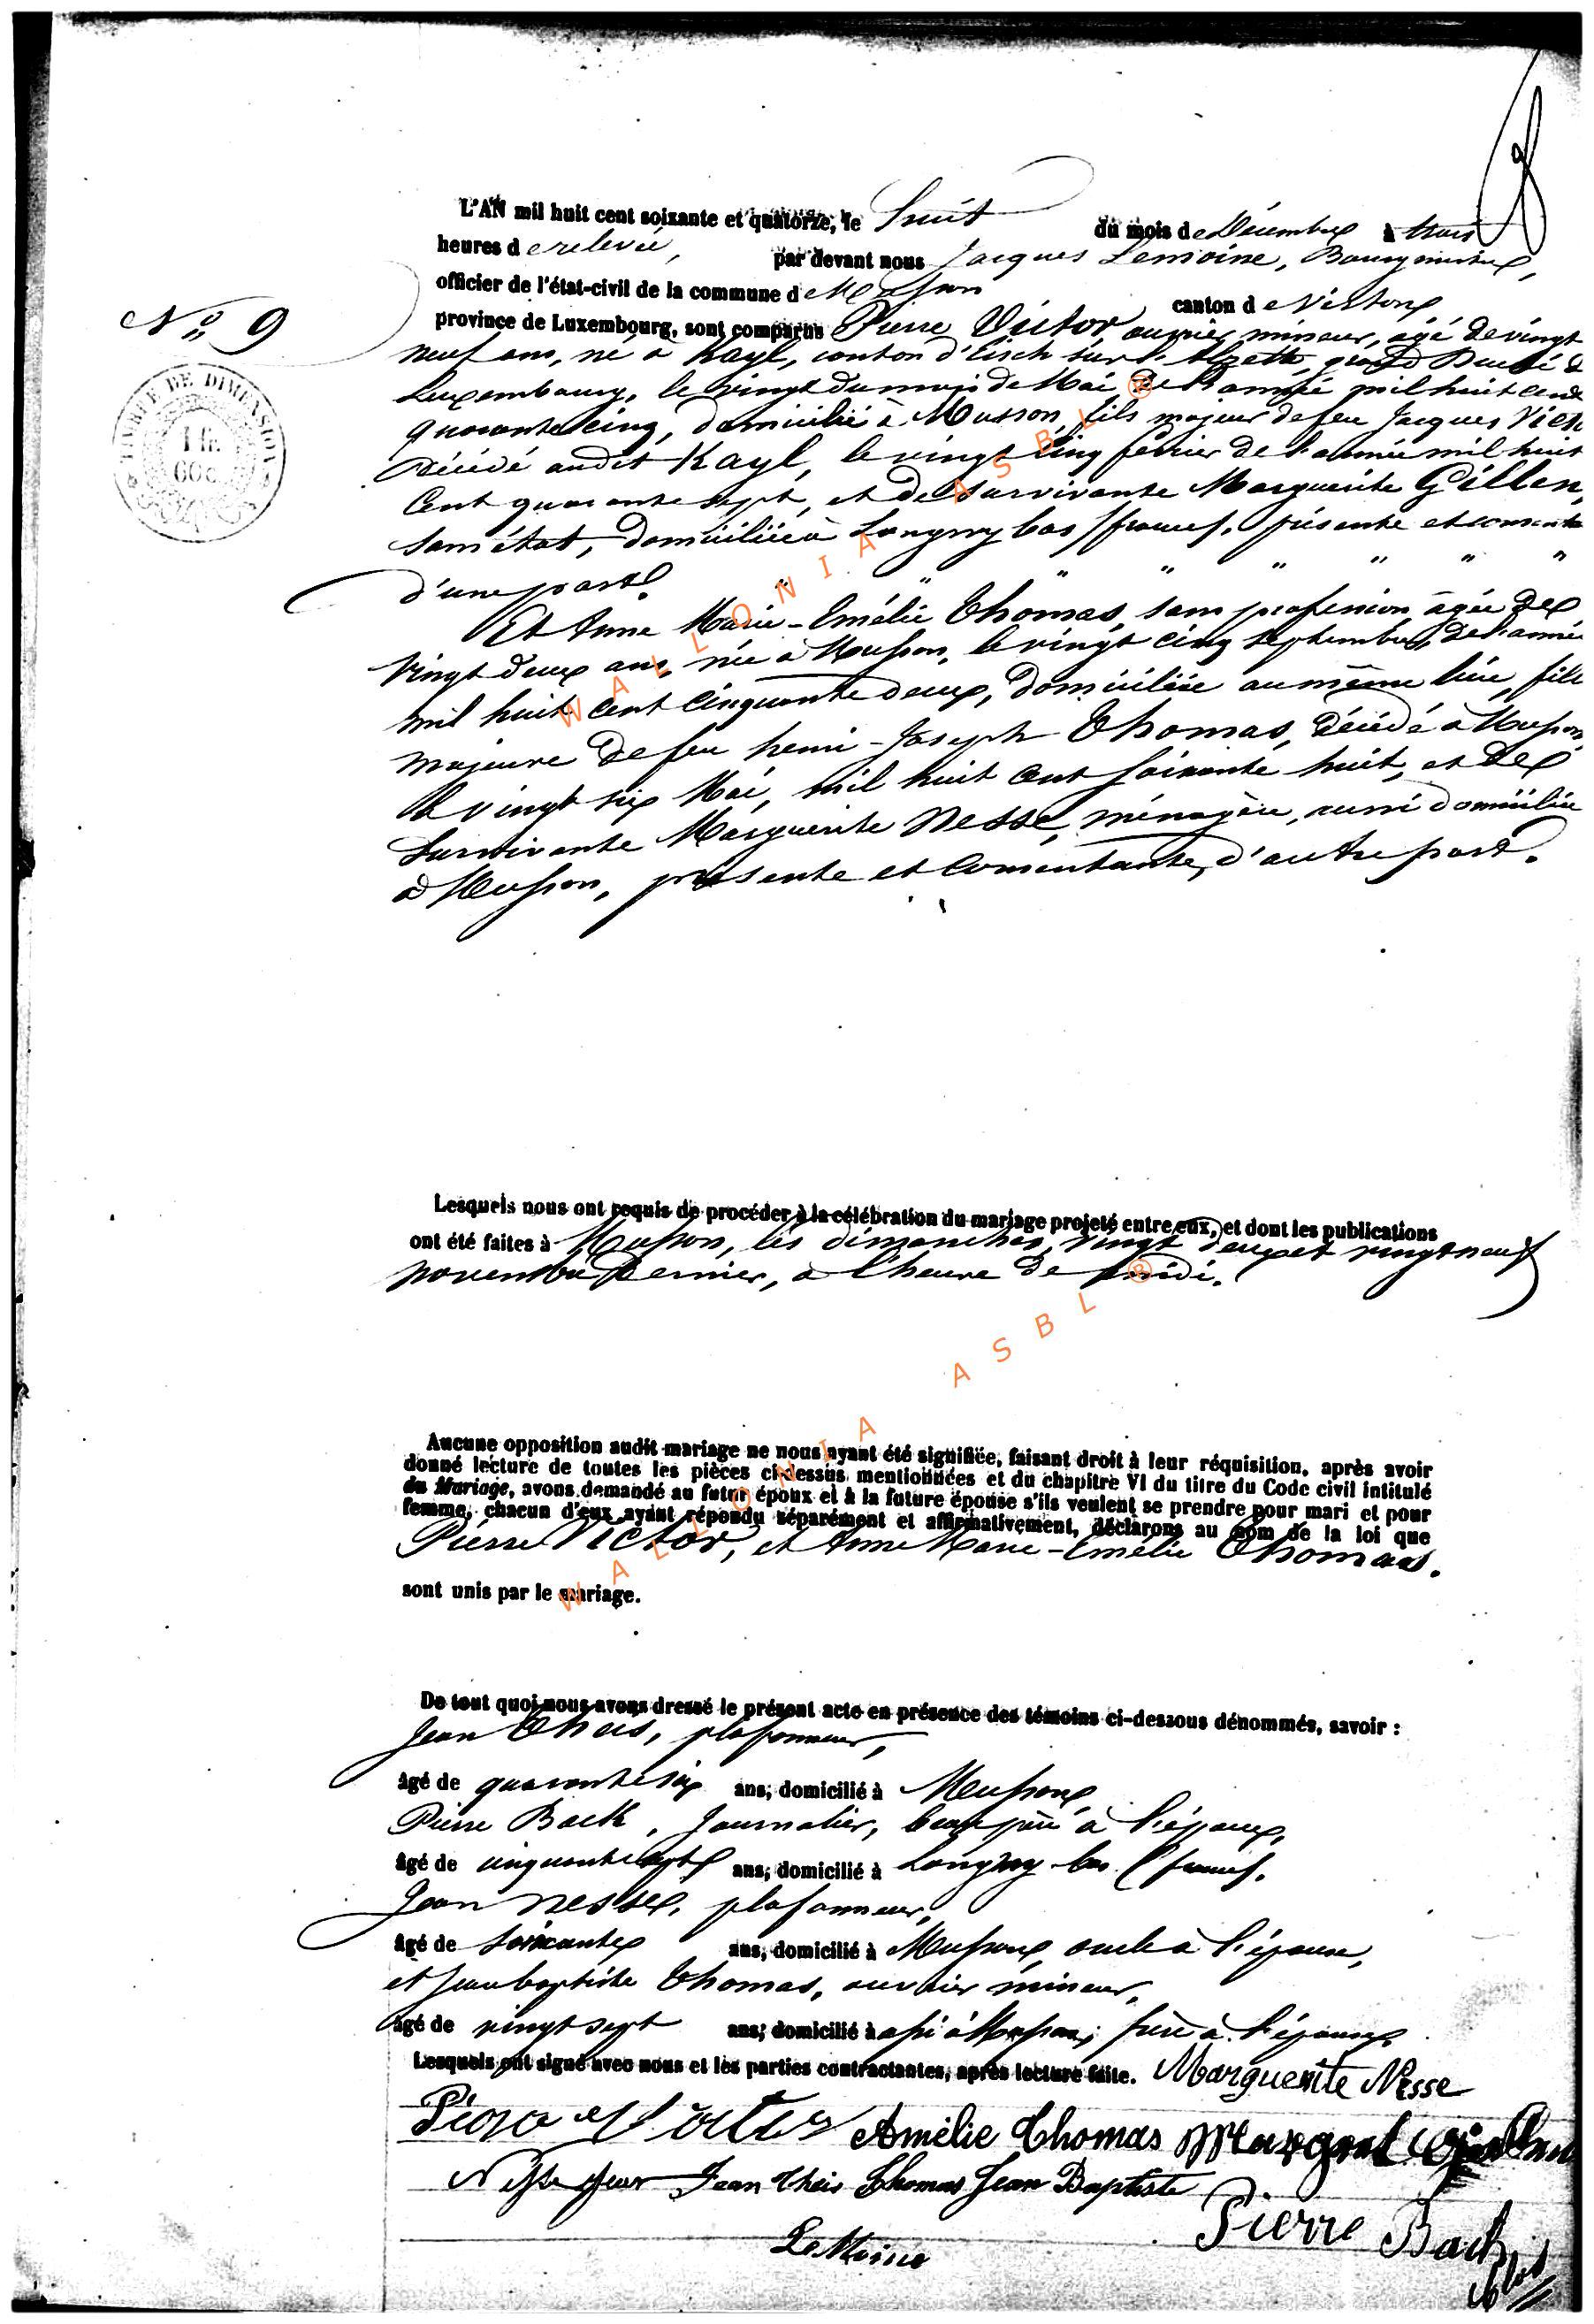 L'AN mil huit cent soixante et quatorze, le huit du mois de Décembre à trois
heures de relevée, par devant nous Jacques Lemoine, Bourgmestre,
officier de l'état-civil de la commune de Musson canton de Virton
N° 9
province de Luxembourg, sont comparus Pierre Victor, ouvrier mineur, âgé de vingt
neuf ans, né à Kayl, canton d'Esch sur l'Alzette, grand Duché de
Luxembourg, le vingt du mois de Mai de l'année mil huit cent
TIMBRE DE DIMENSION
1 fr.
60 c.
quarante cinq, domicilié à Musson, fils majeur de feu Jacques Victor
décédé audit Kayl, le vingt cinq février de l'année mil huit
Cent quarante sept, et de survivante Marguerite Gillen,
sans état, domiciliée à Longwy bas (france). présente et consentante
d'une part. " " " " " " "
Et Anne Marie-Emélie Thomas, sans profession, âgée de
vingt deux ans, née à Musson, le vingt cinq septembre, de l'année
mil huit cent cinquante deux, domiciliée au même lieu, fille
majeure de feu henri-Joseph Thomas, décédé à Musson
le vingt six Mai, mil huit cent soixante huit, et de
survivante Marguerite Nesse, ménagère, aussi domiciliée
à Musson, présente et consentante, d'autre part.
Lesquels nous ont requis de procéder à la célébration du mariage projeté entre eux, et dont les publications
ont été faites à Musson, les dimanches, vingt deux et vingt neuf
novembre dernier, à l'heure de midi.
Aucune opposition audit mariage ne nous ayant été signifiée, faisant droit à leur réquisition, après avoir
donné lecture de toutes les pièces ci-dessus mentionnées et du chapitre VI du titre du Code civil intitulé
du Mariage, avons demandé au futur époux et à la future épouse s'ils veulent se prendre pour mari et pour
femme, chacun d'eux ayant répondu séparément et affirmativement, déclarons au nom de la loi que
Pierre Victor, et Anne Marie-Emélie Thomas.
sont unis par le mariage.
De tout quoi nous avons dressé le présent acte en présence des témoins ci-dessous dénommés, savoir :
Jean Theis, plafonneur,
âgé de quarante six ans, domicilié à Musson,
Pierre Back, Journalier, beau père à l'époux,
âgé de cinquante sept ans, domicilié à Longwy-bas (france).
Jean Nesse, plafonneur,
âgé de soixante ans, domicilié à Musson, oncle à l'épouse,
et Jean baptiste Thomas, ouvrier mineur,
âgé de vingt sept ans, domicilié à Musson, frère à l'épouse.
Lesquels ont signé avec nous et les parties contractantes, après lecture faite. Marguerite Nesse
Amélie Thomas Margret Gillen
Nesse Jean Jean Theis Thomas Jean Baptiste
Pierre Back
LeMoine
WALLONIA ASBL ®
WALLONIA ASBL ®